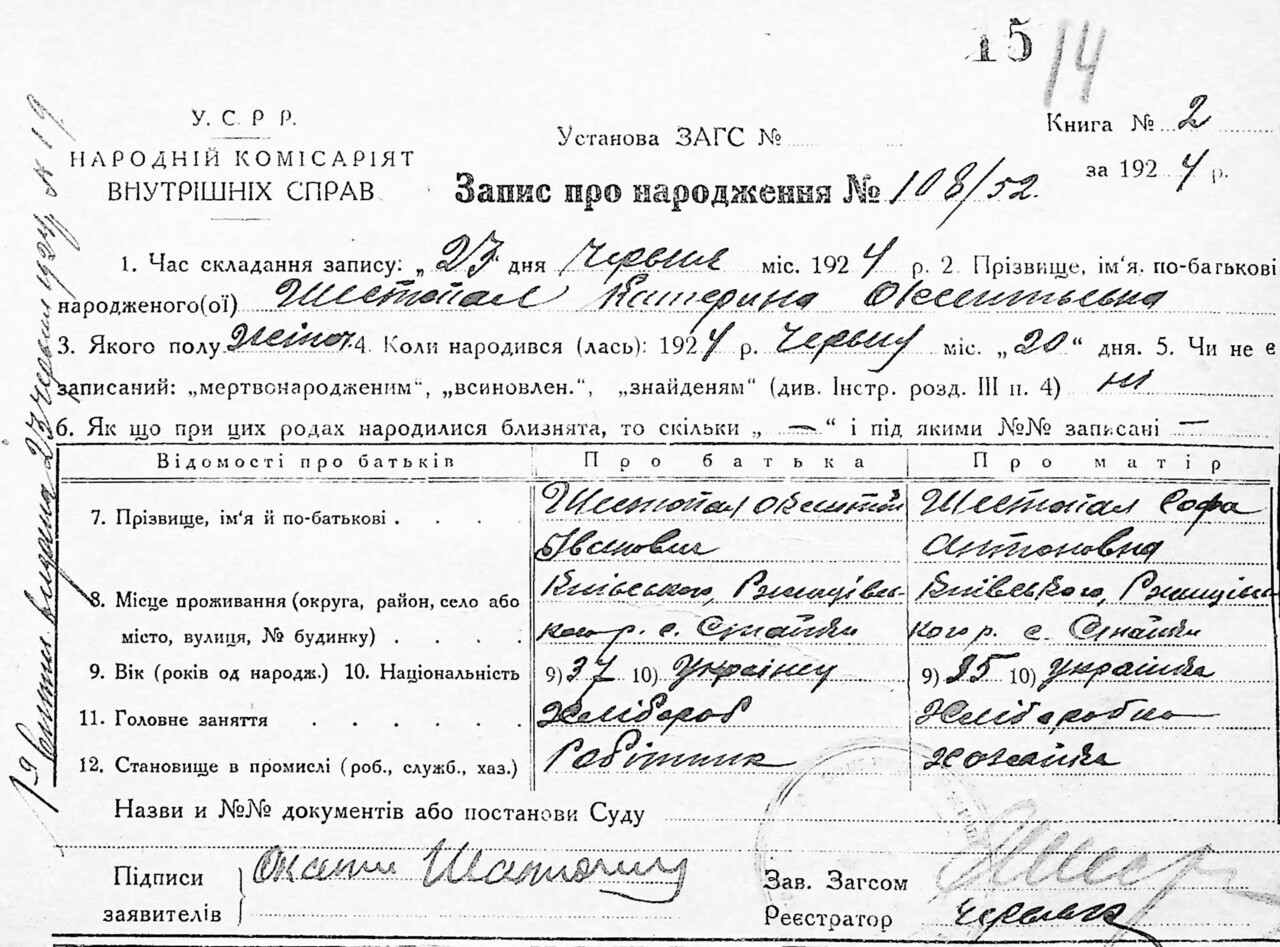 15 14
У. С. Р. Р.
НАРОДНІЙ КОМІСАРІЯТ
ВНУТРІШНІХ СПРАВ
Установа ЗАГС №
Книга № 2
за 1924 р.
Запис про народження № 108/52.
1. Час складання запису: „27 дня Червня міс. 1924 р. 2. Прізвище, ім'я, по-батькові
народженого(ої) Шестопал Катерина Оксентьевна
3. Якого полу жіноч. 4. Коли народився (лась): 1924 р. Червня міс. „20“ дня. 5. Чи не є
записаний: „мертвонародженим“, „всиновлен.“, „знайденям“ (див. Інстр. розд. III п. 4) ні
6. Як що при цих родах народилися близнята, то скільки „ — “ і під якими №№ записані —
Відомості про батьків Про батька Про матір
7. Прізвище, ім'я й по-батькові . . . . Шестопал Оксентій Шестопал Софа
Іванович Антоновна
8. Місце проживання (округа, район, село або Київського, Ржищівсь- Київського, Ржищівсь-
місто, вулиця, № будинку) . . . . кого р. с. Стайки кого р. с. Стайки
9. Вік (років од народж.) 10. Національність 9) 37 10) Українец 9) 35 10) Українка
11. Головне заняття . . . . . . Хлібороб Хліборобка
12. Становище в промислі (роб., служб., хаз.) Робітник хозяйка
Назви и №№ документів або постанови Суду
Підписи
заявителів
Зав. Загсом
Реєстратор
видана 27 червня 1924 р. № 19